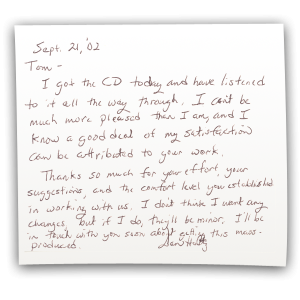 Sept. 21, '02
Tom -
I got the CD today and have listened
to it all the way through. I can't be
much more pleased than I am, and I
know a good deal of my satisfaction
can be attributed to your work.
Thanks so much for your effort, your
suggestions, and the comfort level you established
in working with us. I don't think I want any
changes, but if I do, they'll be minor. I'll be
in touch with you soon about getting this mass-
produced.